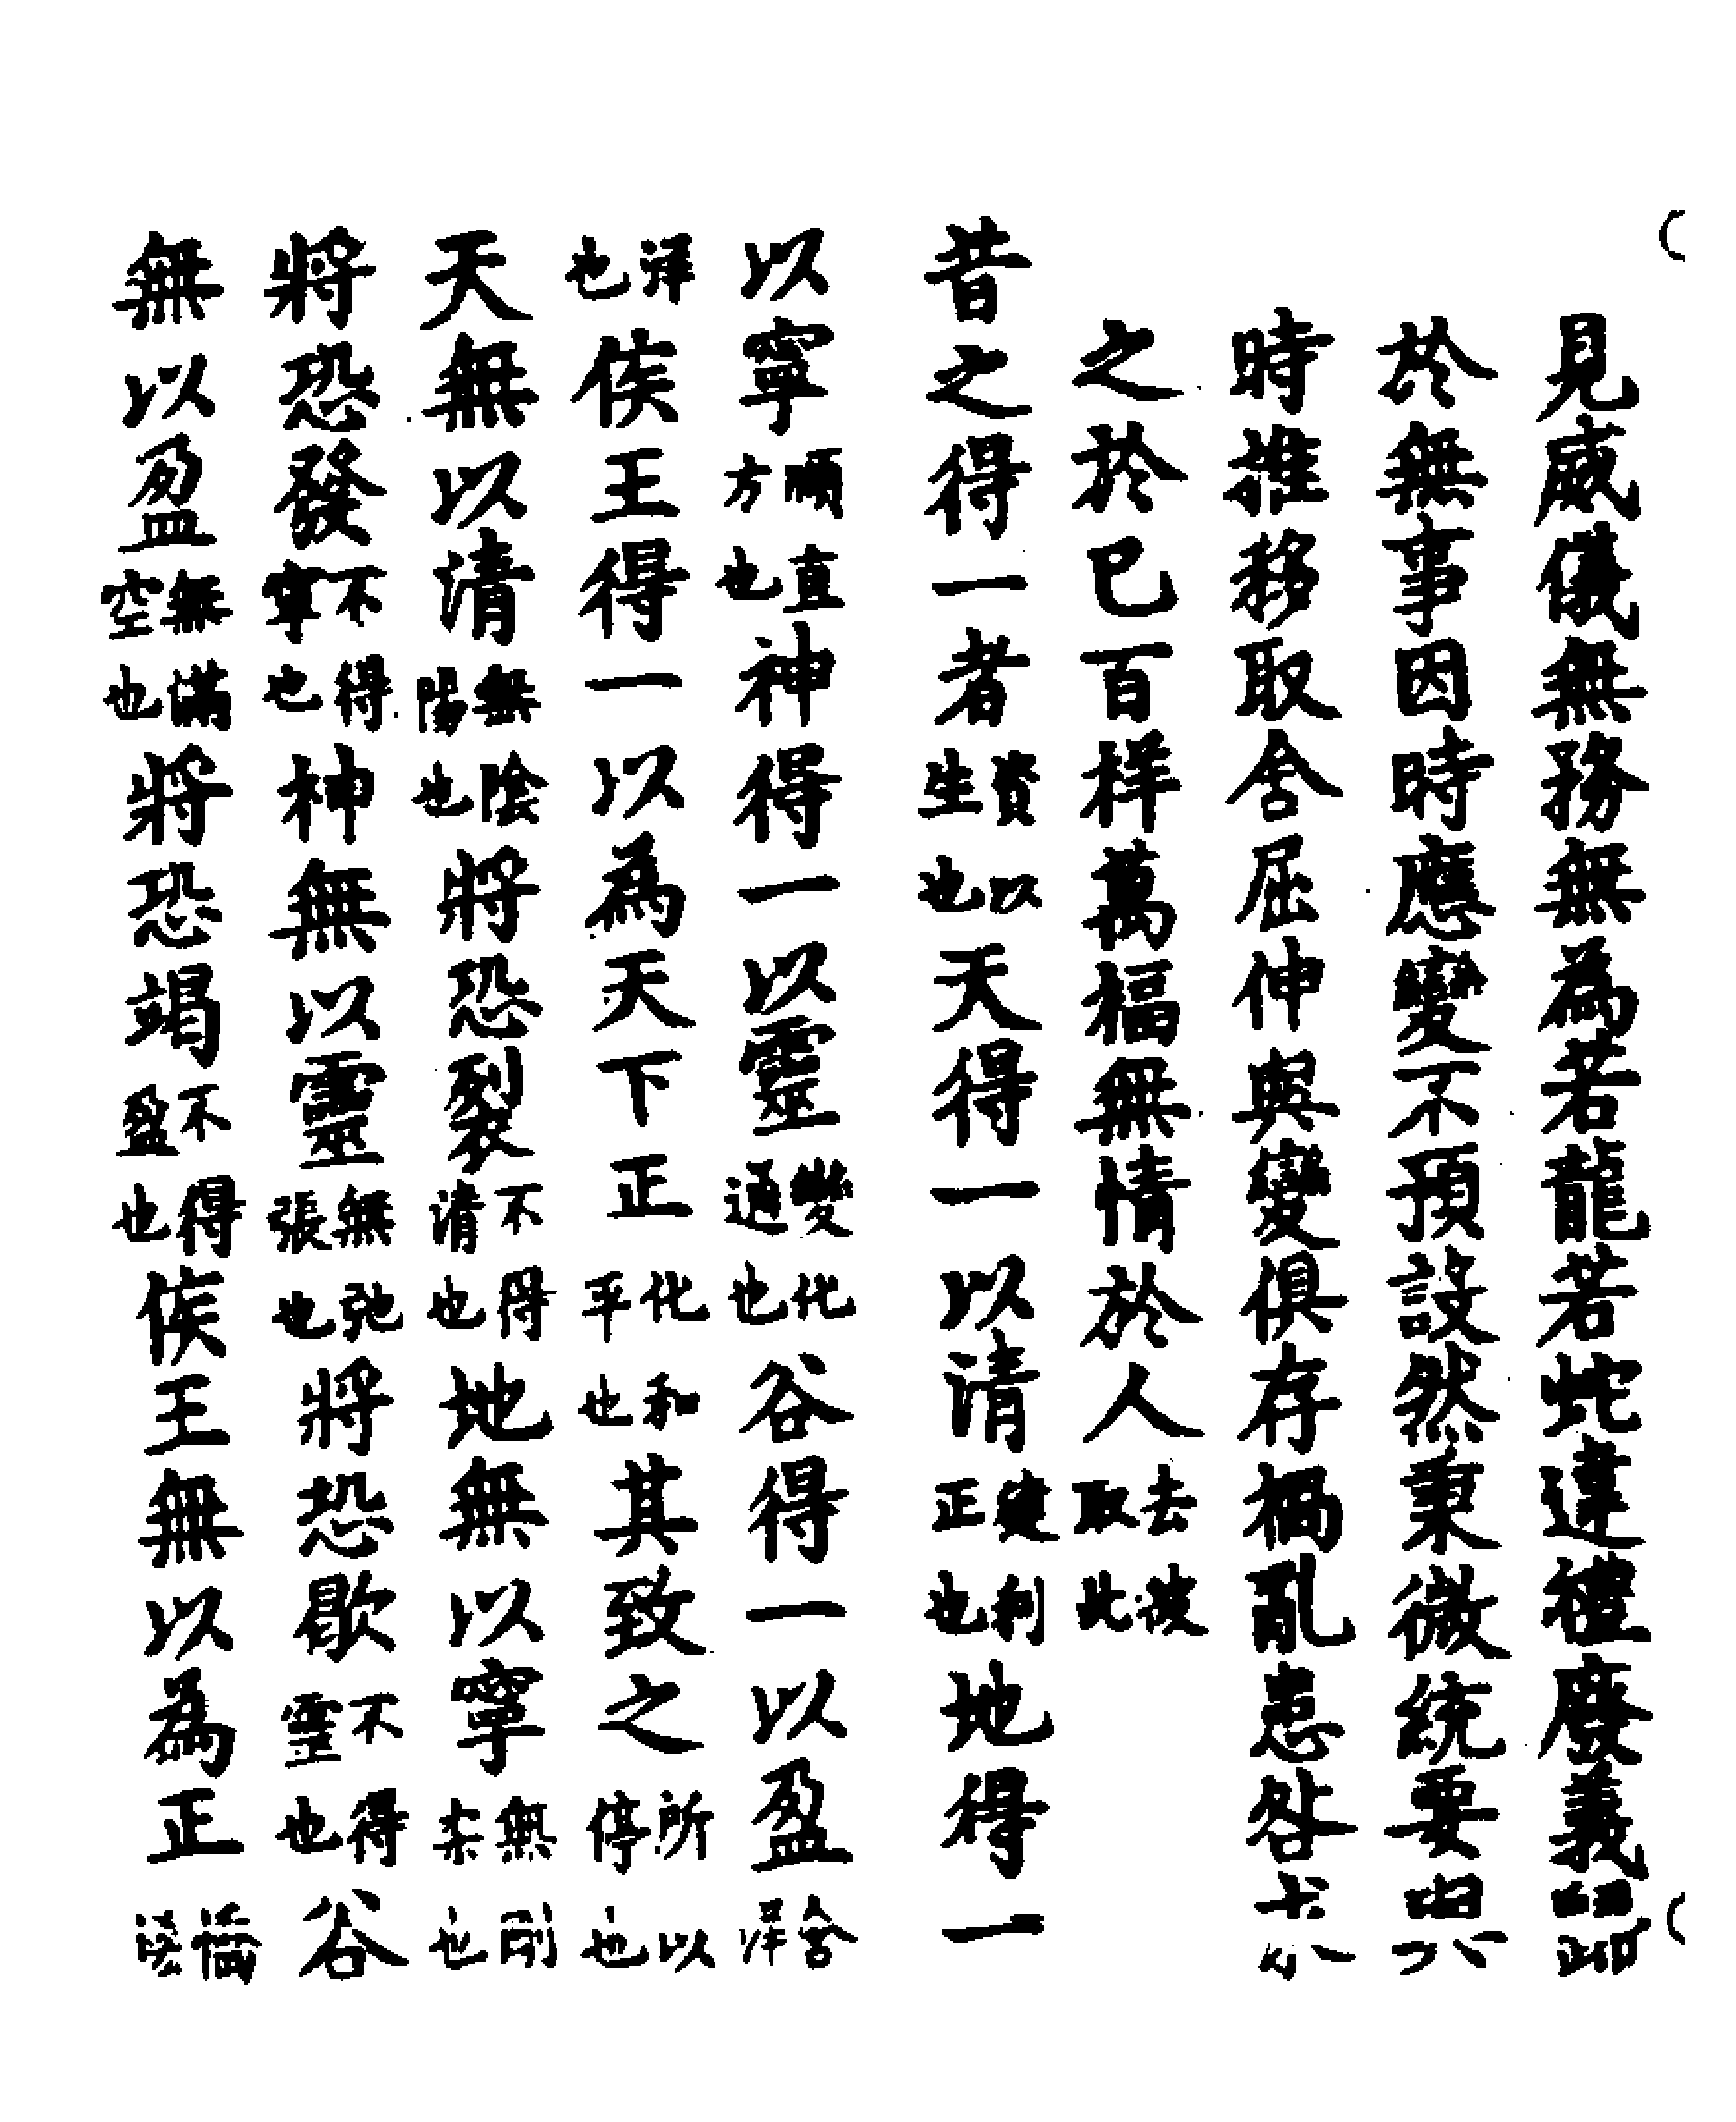 見威儀無務無為若龍若蛇違禮廢義歸
於無事因時應變不預設然秉微統要與
時推移取舍屈伸與變俱存禍亂患咎求
之於已百祥萬福無情於人去彼取此
昔之得一者資以生也天得一以清建利正也地得一
以寧順直方也神得一以靈變化通也谷得一以盈含
澤也侯王得一以為天下正化和平也其致之所以停也
天無以清無陰陽也將恐裂不得清也地無以寧無剛柔也
將恐發不得寧也神無以靈無弛張也將恐歇不得靈也谷
無以盈無滿空也將恐竭不得盈也侯王無以為正